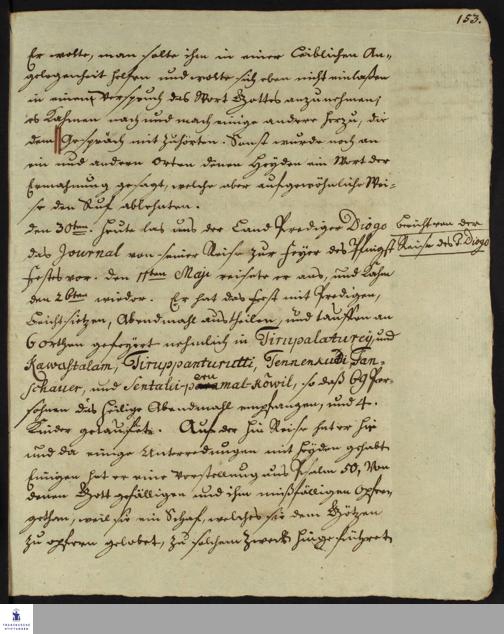 153.
Er wolte, man solte ihm in einer Leiblichen An-
gelegenheit helfen und wolte sich eben nicht einlaßen
in einem Versprüch das Wort Gottes anzunehmen,
es kahmen nach und nach einige andere herzu, die
dem Gespräch mit zuhörten. Sonst wurde noch an
ein und andern Orten denen Heyden ein Wort der
Ermahnung gesagt, welche aber auf gewöhnliche Wei-
se den Ruf ablehnten.
den 30ten. Heute las uns der Land Prediger Diogo
bericht von der
Reise des P. Diogo
das Journal von seiner Reise zur Feyer des Pfingst
Festes vor. den 11ten Maji reisete er aus, und kahm
den 26ten wieder. Er hat das Fest mit Predigen,
Beichtsitzen, Abendmahl austheilen, und tauffen an
6 Orthen gefeyert nehmlich in Tirupalaturey, und
Kawastalam, Tiruppanturutti, Tennenkudi Tan-
schauer, und Sentalei-perumal-Kowil, so daß 69 Per-
sohnen das heilige Abendmahl empfangen, und 4.
Kinder getauffet. Auf der Hin Reise hat er hie
und da einige Unterredungen mit Heyden gehabt
Einigen hat er eine Vorstellung aus Psalm 50, Von
denen Gott gefälligen und ihm mißfälligen Opfern,
gethan, weil sie ein Schaf, welches sie dem Götzen
zu opfern gelobet, zu solchem Zweck hingeführet
FRANCKESCHE STIFTUNGEN